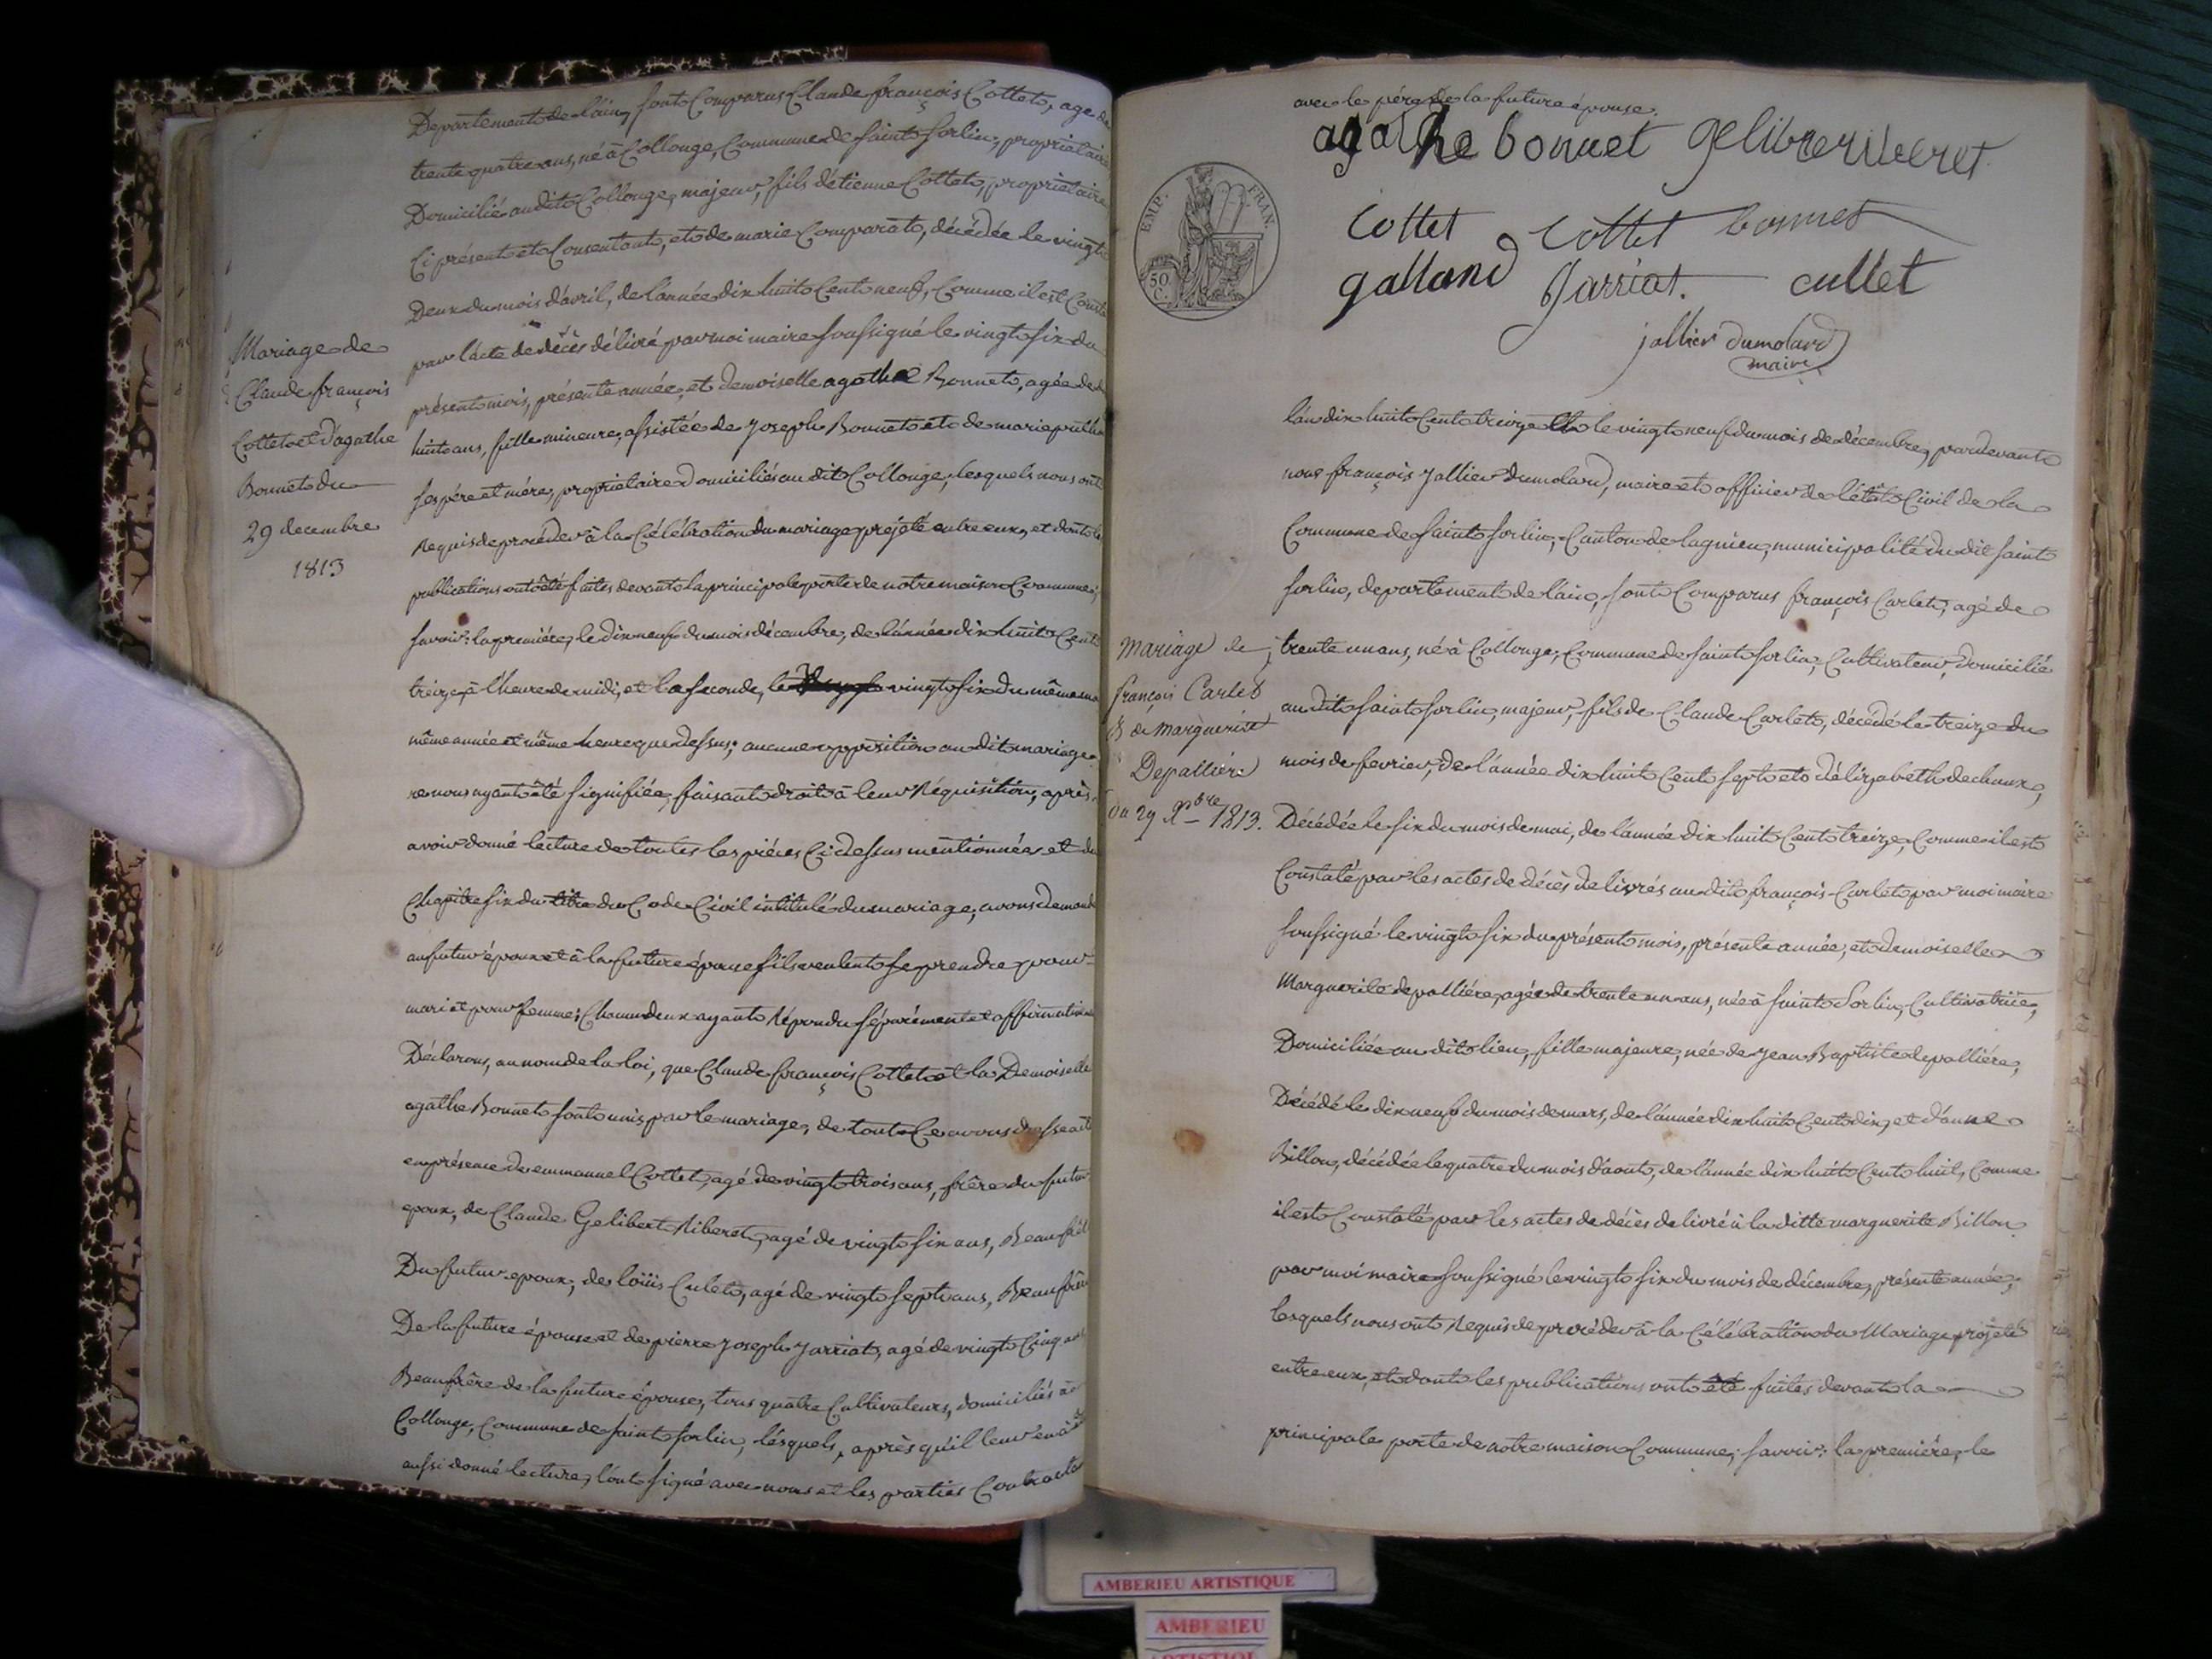 Mariage de
Claude françois
Cottet et d'agathe
Bonnet du
29 decembre
1813
Departement de l'ain, sont Comparus Claude françois Cottet, agé de
trente quatre ans, né à Collonge, Commune de saint sorlin, proprietaire
Domicilié au dit Collonge, majeur, fils d'étienne Cottet, proprietaire
Ci présent et Consentant, et de marie Comparat, décédée le vingt
Deux du mois d'avril, de l'année dix huit Cent neuf, Comme il est Consta
par l'acte de décès délivré par moi maire soussigné le vingt six du
présent mois, présente année, et demoiselle agathe Bonnet, agée de
huit ans, fille mineure, assistée de Joseph Bonnet et de marie
ses père et mère, proprietaire Domiciliés au dit Collonge, lesquels nous ont
Requis de proceder à la Célébration du mariage projeté entre eux, et dont les
publications ont été faites devant la principale porte de notre maison Commune;
savoir: la première, le dix neuf du mois décembre, de l'année dix huit Cent
treize, à l'heure de midi, et la seconde, le vingt six du même mois
même année et même heure que dessus; aucune opposition au dit mariage
ne nous ayant été signifiée, faisant droit à leur Réquisition, après
avoir donné lecture de toutes les piéces Ci dessus mentionnées et du
Chapitre six du titre du Code Civil intitulé du mariage, avons demandé
au futur époux et à la future épouse s'ils veulent se prendre pour
mari et pour femme; Chacun d'eux ayant Répondu séparément et affirmativem
Déclarons, au nom de la loi, que Claude françois Cottet et la Demoiselle
agathe Bonnet sont unis par le mariage, de tout Ce avons dressé acte
en présence de emmanuel Cottet, agé de vingt trois ans, frère du futur
epoux, de Claude Gelibert Riberet, agé de vingt six ans, Beaufrèr
Du futur epoux, de loüis Culet, agé de vingt sept ans, Beaufrère
De la future épouse et de pierre Joseph Jarriat, agé de vingt Cinq ans
Beaufrère de la future épouse, tous quatre Cultivateurs, domiciliés à
Collonge, Commune de saint sorlin, lésquels, après qu'il leur en à été
aussi donné lecture, l'ont signé avec nous et les parties Contracta
avec le père de la future épouse.
agathe bonnet
Cottet Cottet bonnet
galland Jarriat. cullet
jallier dumolard
maire
EMP. FRAN.
50 C.
l'an dix huit Cent treize et le vingt neuf du mois de décembre, pardevant
nous françois Jallier dumolard, maire et officier de l'état Civil de la
Commune de saint sorlin, Canton de lagnieu, municipalité du dit saint
sorlin, departement de l'ain, sont Comparus françois Carlet, agé de
mariage de
françois Carlet
& de margueritte
Depallière
du 29 Xbre 1813.
trente un ans, né à Collonge, Commune de saint sorlin, Cultivateur, domicilié
au dit saint sorlin, majeur, fils de Claude Carlet, décédé le treize du
mois de fevrier, de l'année dix huit Cent sept et d'élizabeth dechaux,
Décédée le six du mois de mai, de l'année dix huit Cent treize, Comme il est
Constaté par les actes de décès delivrés au dit françois Carlet par moi maire
soussigné le vingt six du présent mois, présente année, et demoiselle
Marguerite depallière, agée de trente un ans, née à saint Sorlin, Cultivatrice,
Domiciliée au dit lieu, fille majeure, née de Jean Baptiste depallière,
Décédé le dix neuf du mois de mars, de l'année dix huit Cent dix, et d'anne
Billon, décédée le quatre du mois d'aout, de l'année dix huit Cent huit, Comme
il est Constaté par les actes de décès delivré à la ditte marguerite Billon
par moi maire soussigné le vingt six du mois de décembre, présente année;
lesquels nous ont Requis de procéder à la Célébration du Mariage projeté
entre eux, et dont les publications ont été faites devant la
principale porte de notre maison Commune; savoir: la première, le
AMBERIEU ARTISTIQUE
AMBERIEU
ARTISTIQUE